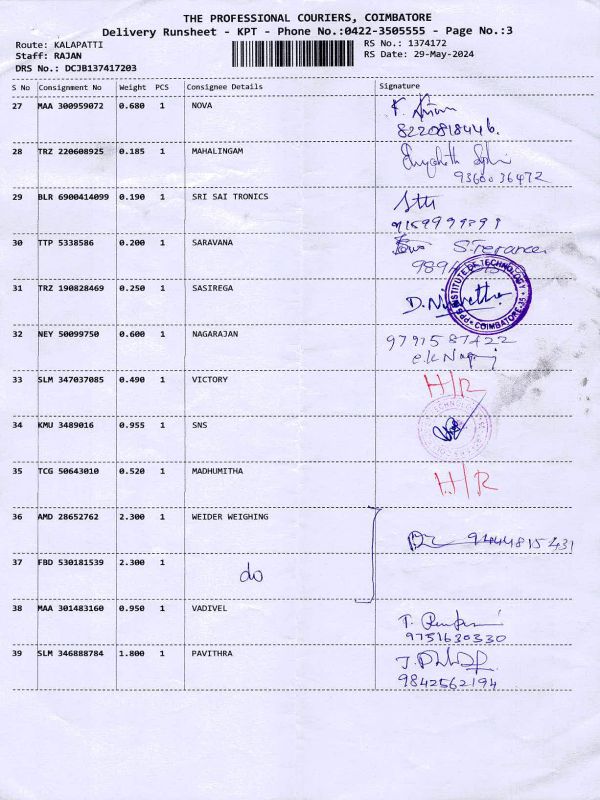 THE PROFESSIONAL COURIERS, COIMBATORE
Delivery Runsheet - KPT - Phone No.:0422-3505555 - Page No.:3
Route: KALAPATTI
RS No.: 1374172
Staff: RAJAN
RS Date: 29-May-2024
DRS No.: DCJB137417203
S No Consignment No Weight PCS Consignee Details Signature
27 MAA 300959072 0.680 1 NOVA
8220818446.
28 TRZ 220608925 0.185 1 MAHALINGAM
9360036472
29 BLR 6900414099 0.190 1 SRI SAI TRONICS
30 TTP 5338586 0.200 1 SARAVANA
31 TRZ 190828469 0.250 1 SASIREGA
INSTITUTE OF TECHNOLOGY
COIMBATORE-35
32 NEY 50099750 0.600 1 NAGARAJAN
33 SLM 347037085 0.490 1 VICTORY
H/R
34 KMU 3489016 0.955 1 SNS
35 TCG 50643010 0.520 1 MADHUMITHA
H/R
36 AMD 28652762 2.300 1 WEIDER WEIGHING
9444815431
37 FBD 530181539 2.300 1 do
38 MAA 301483160 0.950 1 VADIVEL
9751630330
39 SLM 346888784 1.800 1 PAVITHRA
9842562194